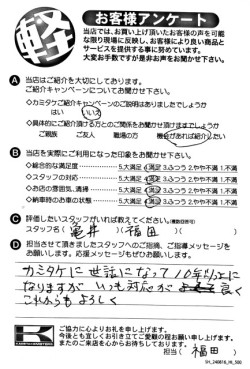 軽
お客様アンケート
当店では、お買い上げ頂いたお客様の声を可能
な限り現場に反映し、お客様により良い商品と
サービスを提供する事に努めています。
大変お手数ですが是非お声をお聞かせ下さい。
A 当店はご紹介を大切にしております。
ご紹介キャンペーンについてお聞かせ下さい。
◇カミタケご紹介キャンペーンのご説明はありましたでしょうか
はい いいえ
◇具体的にご紹介頂ける方とのご関係をお聞かせ頂けますでしょうか
ご親族 ご友人 職場の方 機会があれば紹介したい
B 当店を実際にご利用になった印象をお聞かせ下さい。
◇総合的な満足度 5.大満足 4.満足 3.ふつう 2.やや不満 1.不満
◇スタッフの対応 5.大満足 4.満足 3.ふつう 2.やや不満 1.不満
◇お店の雰囲気、清掃 5.大満足 4.満足 3.ふつう 2.やや不満 1.不満
◇納車時のお車の状態 5.大満足 4.満足 3.ふつう 2.やや不満 1.不満
C 評価したいスタッフがいれば教えてください。(複数回答可)
スタッフ名( 亀井 )( 福田 )( )
D 担当させて頂きましたスタッフへのご指摘、ご指導メッセージを
お願いします。応援メッセージもぜひお願いします。
カミタケに世話になって10年以上に
なりますがいつも対応が良く
これからもよろしく
ご協力に心よりお礼を申し上げます。
今後とも宜しくお引き立てご愛顧の程お願い申し上げます。
またのご来店を心からお待ちしております。
担当( 福田 )